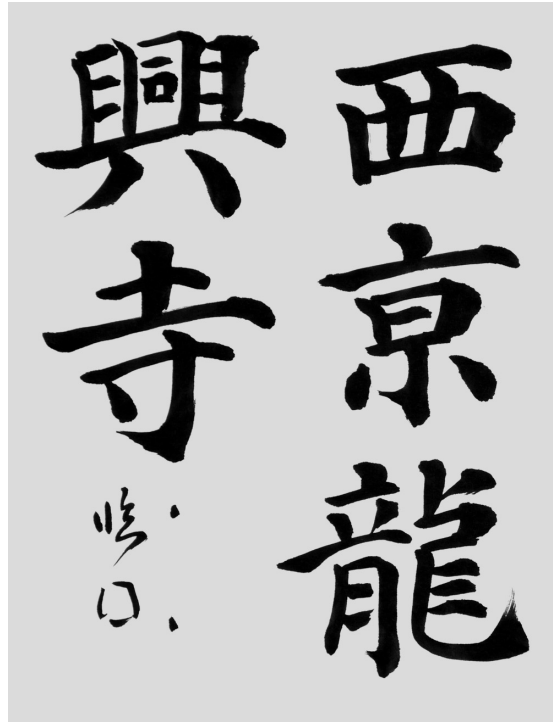 西京龍
興寺
臨